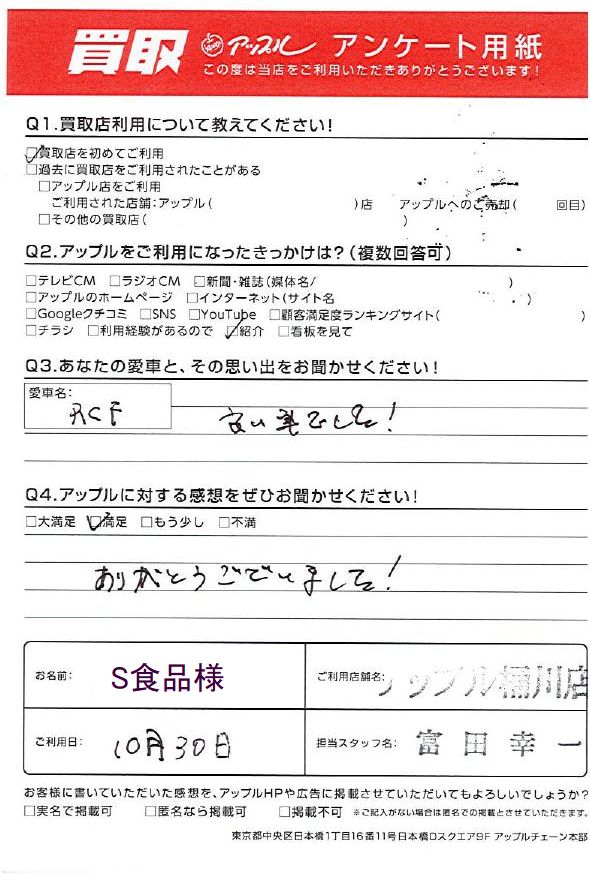 買取 アップル アンケート用紙
この度は当店をご利用いただきありがとうございます!
Q1.買取店利用について教えてください!
☑買取店を初めてご利用
□過去に買取店をご利用されたことがある
□アップル店をご利用
ご利用された店舗:アップル( )店 アップルへのご売却( 回目)
□その他の買取店( )
Q2.アップルをご利用になったきっかけは?(複数回答可)
□テレビCM □ラジオCM □新聞・雑誌(媒体名/ )
□アップルのホームページ □インターネット(サイト名 )
□Googleクチコミ □SNS □YouTube □顧客満足度ランキングサイト( )
□チラシ □利用経験があるので ☑紹介 □看板を見て
Q3.あなたの愛車と、その思い出をお聞かせください!
愛車名:
RCF 良い車でした!
Q4.アップルに対する感想をぜひお聞かせください!
□大満足 ☑満足 □もう少し □不満
ありがとうございました!
お名前: S食品様 ご利用店舗名: アップル桶川店
ご利用日: 10月30日 担当スタッフ名: 富田幸一
お客様に書いていただいた感想を、アップルHPや広告に掲載させていただいてもよろしいでしょうか?
□実名で掲載可 □匿名なら掲載可 □掲載不可 ※ご記入がない場合は匿名での掲載とさせていただきます。
東京都中央区日本橋1丁目16番11号日本橋Dスクエア9F アップルチェーン本部